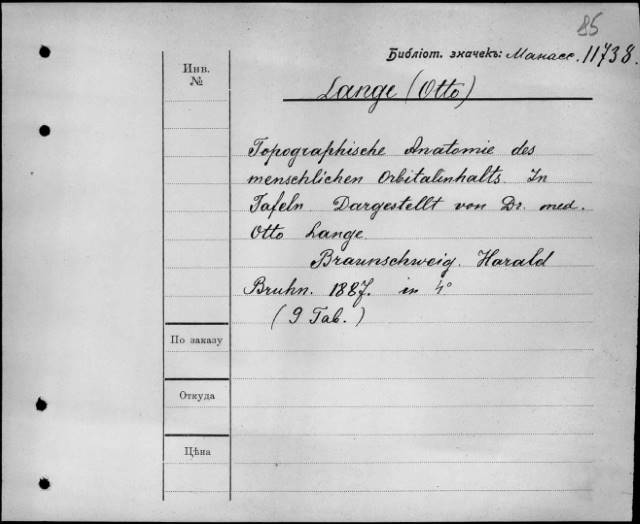 85
Библіот. значекъ: Манасс. 11738.
Инв.
№
Lange (Otto)
Topographische Anatomie des
menschlichen Orbitalinhalts. In
Tafeln Dargestellt von Dr. med.
Otto Lange.
Braunschweig. Harald
Bruhn. 1887. in 4°
(9 Tab.)
По заказу
Откуда
Цѣна